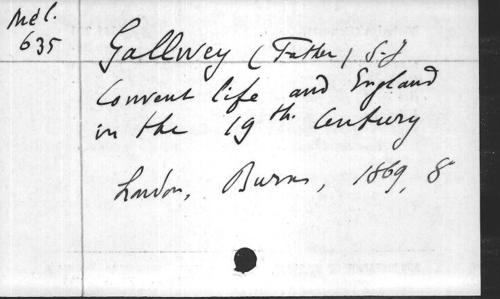 Mél.
635
Gallwey (Father) S.J
Convent life and England
in the 19th Century
London, Burns, 1869, 8°